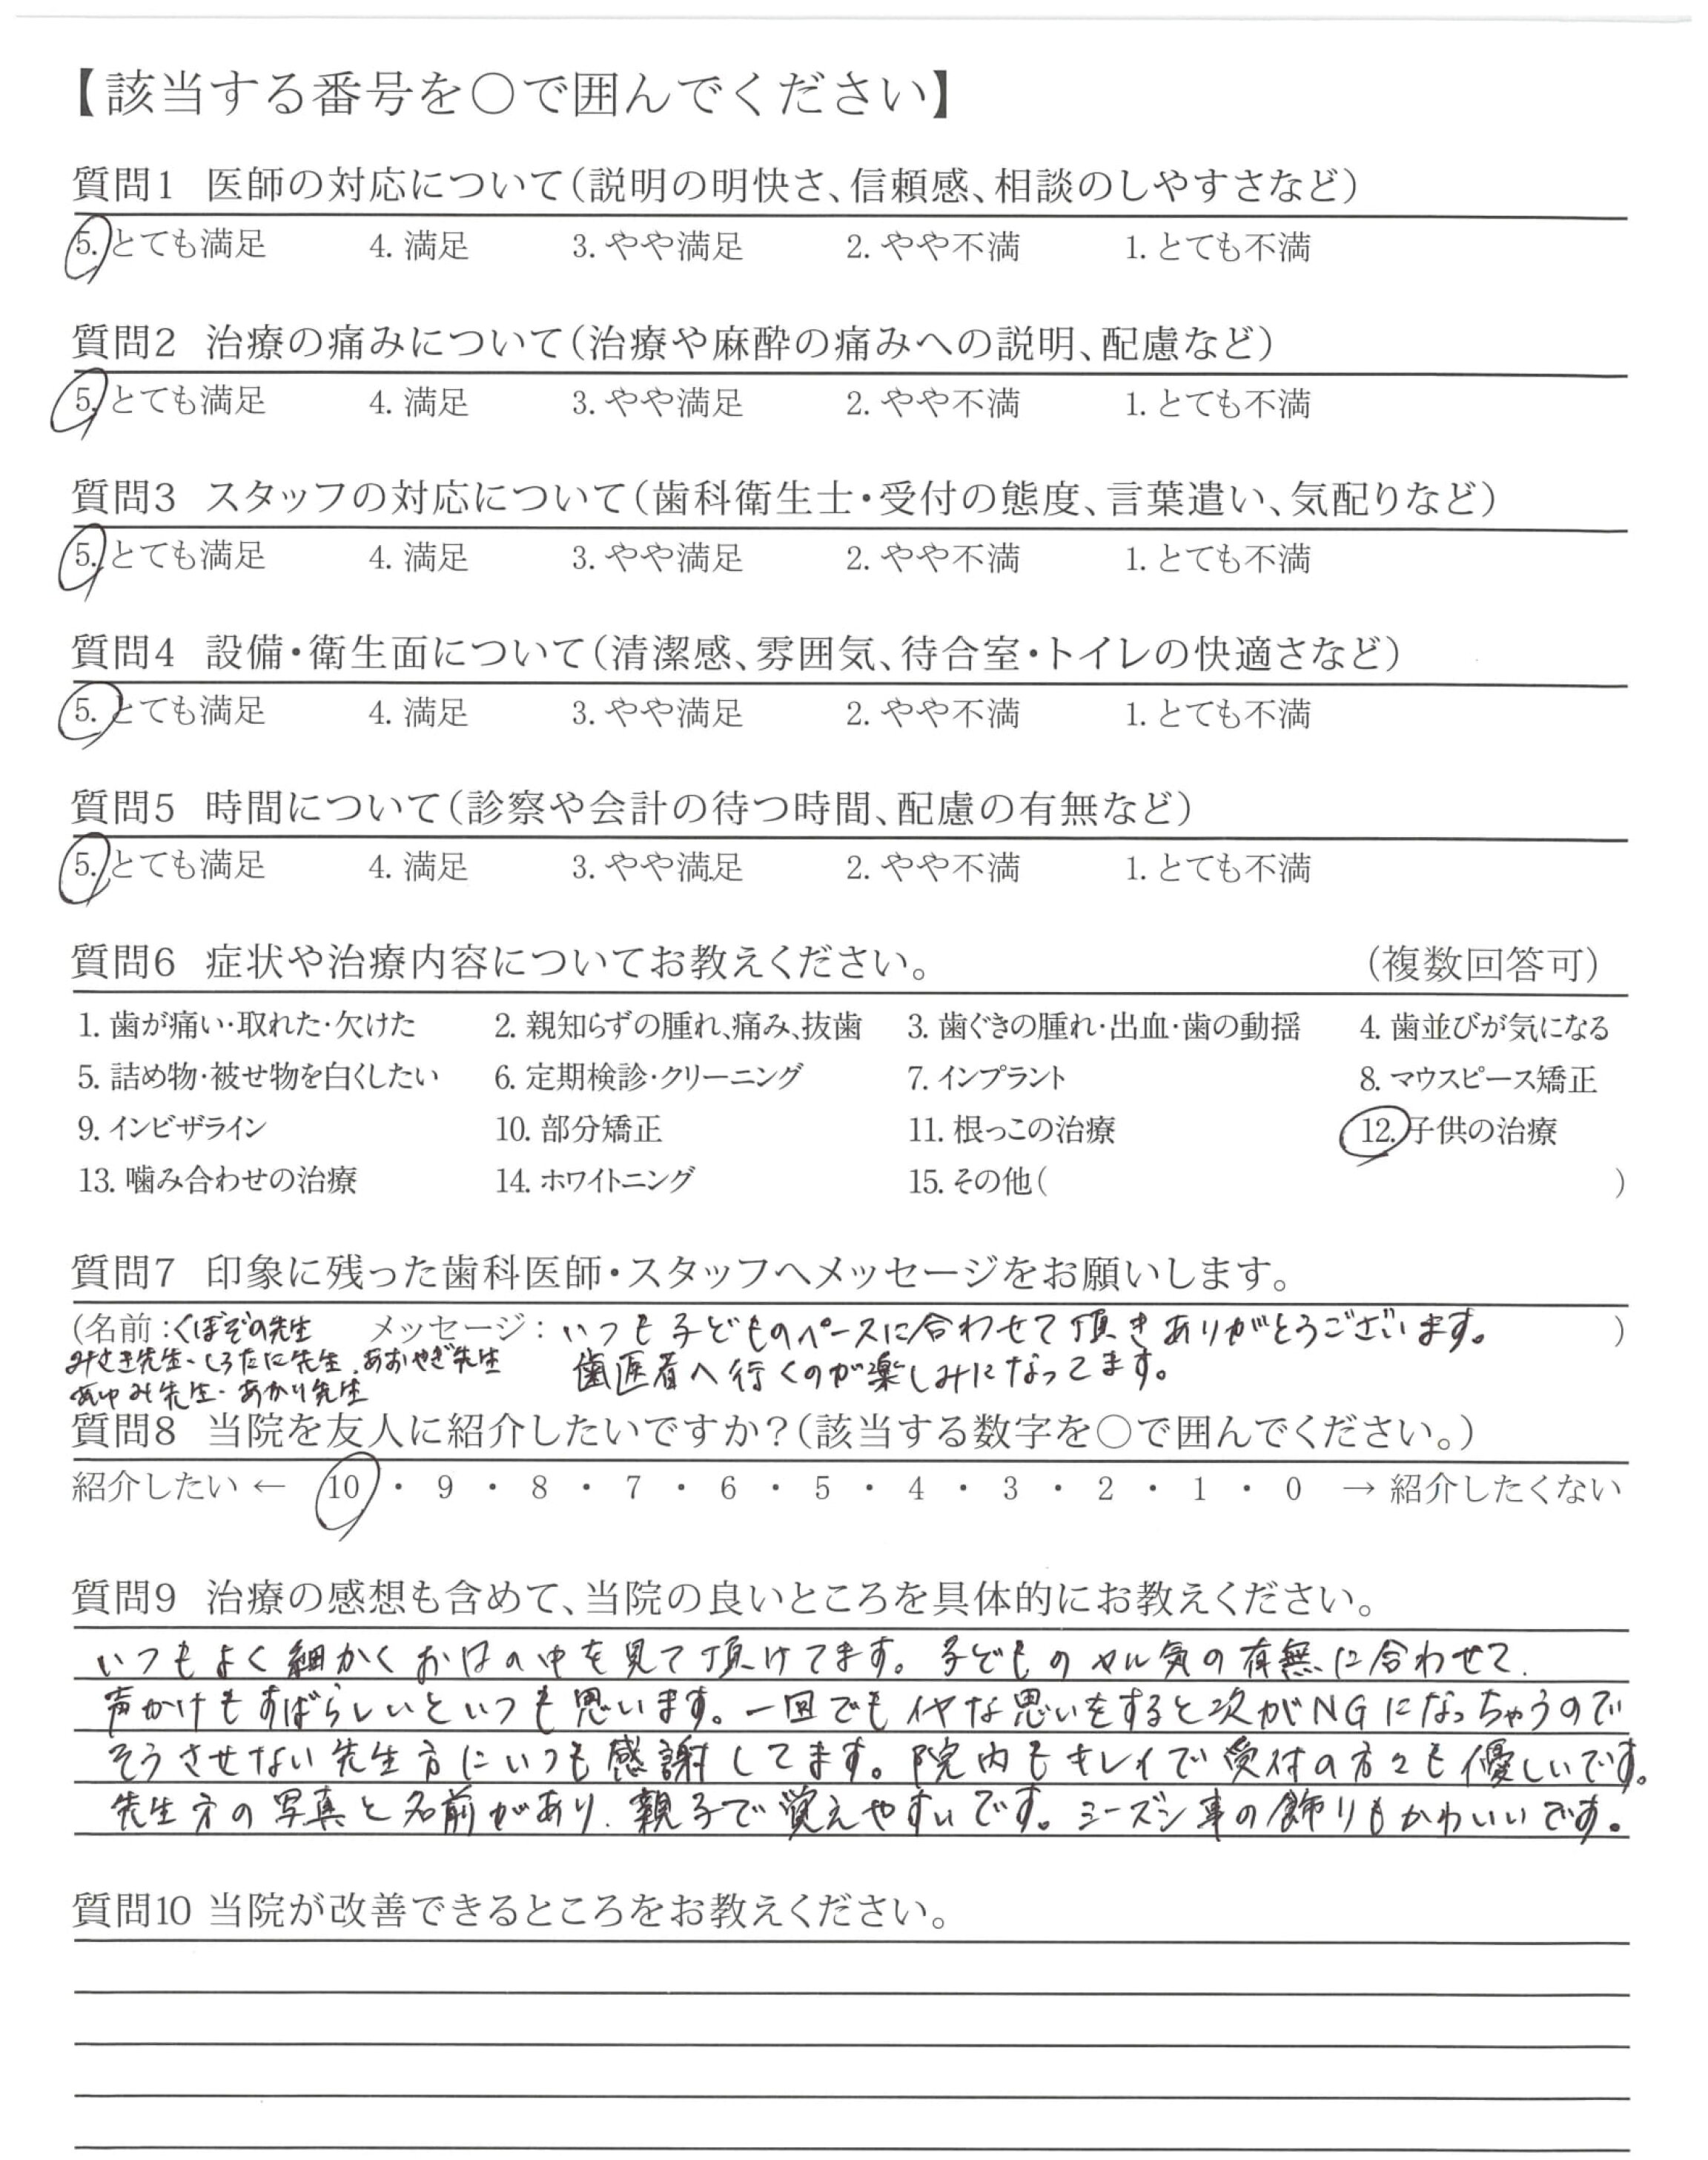 【該当する番号を○で囲んでください】
質問1 医師の対応について(説明の明快さ、信頼感、相談のしやすさなど)
5. とても満足 4. 満足 3. やや満足 2. やや不満 1. とても不満
質問2 治療の痛みについて(治療や麻酔の痛みへの説明、配慮など)
5. とても満足 4. 満足 3. やや満足 2. やや不満 1. とても不満
質問3 スタッフの対応について(歯科衛生士・受付の態度、言葉遣い、気配りなど)
5. とても満足 4. 満足 3. やや満足 2. やや不満 1. とても不満
質問4 設備・衛生面について(清潔感、雰囲気、待合室・トイレの快適さなど)
5. とても満足 4. 満足 3. やや満足 2. やや不満 1. とても不満
質問5 時間について(診察や会計の待つ時間、配慮の有無など)
5. とても満足 4. 満足 3. やや満足 2. やや不満 1. とても不満
質問6 症状や治療内容についてお教えください。 (複数回答可)
1. 歯が痛い・取れた・欠けた 2. 親知らずの腫れ、痛み、抜歯 3. 歯ぐきの腫れ・出血・歯の動揺 4. 歯並びが気になる
5. 詰め物・被せ物を白くしたい 6. 定期検診・クリーニング 7. インプラント 8. マウスピース矯正
9. インビザライン 10. 部分矯正 11. 根っこの治療 12. 子供の治療
13. 噛み合わせの治療 14. ホワイトニング 15. その他( )
質問7 印象に残った歯科医師・スタッフへメッセージをお願いします。
(名前:くぼぞの先生 メッセージ: いつも子どものペースに合わせて頂きありがとうございます。 )
みさき先生・しろたに先生、あおやぎ先生 歯医者へ行くのが楽しみになってます。
あゆみ先生・あかり先生
質問8 当院を友人に紹介したいですか?(該当する数字を○で囲んでください。)
紹介したい ← 10 ・ 9 ・ 8 ・ 7 ・ 6 ・ 5 ・ 4 ・ 3 ・ 2 ・ 1 ・ 0 → 紹介したくない
質問9 治療の感想も含めて、当院の良いところを具体的にお教えください。
いつもよく細かくお口の中を見て頂けてます。子どものヤル気の有無に合わせて、
声かけもすばらしいといつも思います。一回でもイヤな思いをすると次がNGになっちゃうので
そうさせない先生方にいつも感謝してます。院内もキレイで受付の方々も優しいです。
先生方の写真と名前があり、親子で覚えやすいです。シーズン事の飾りもかわいいです。
質問10 当院が改善できるところをお教えください。